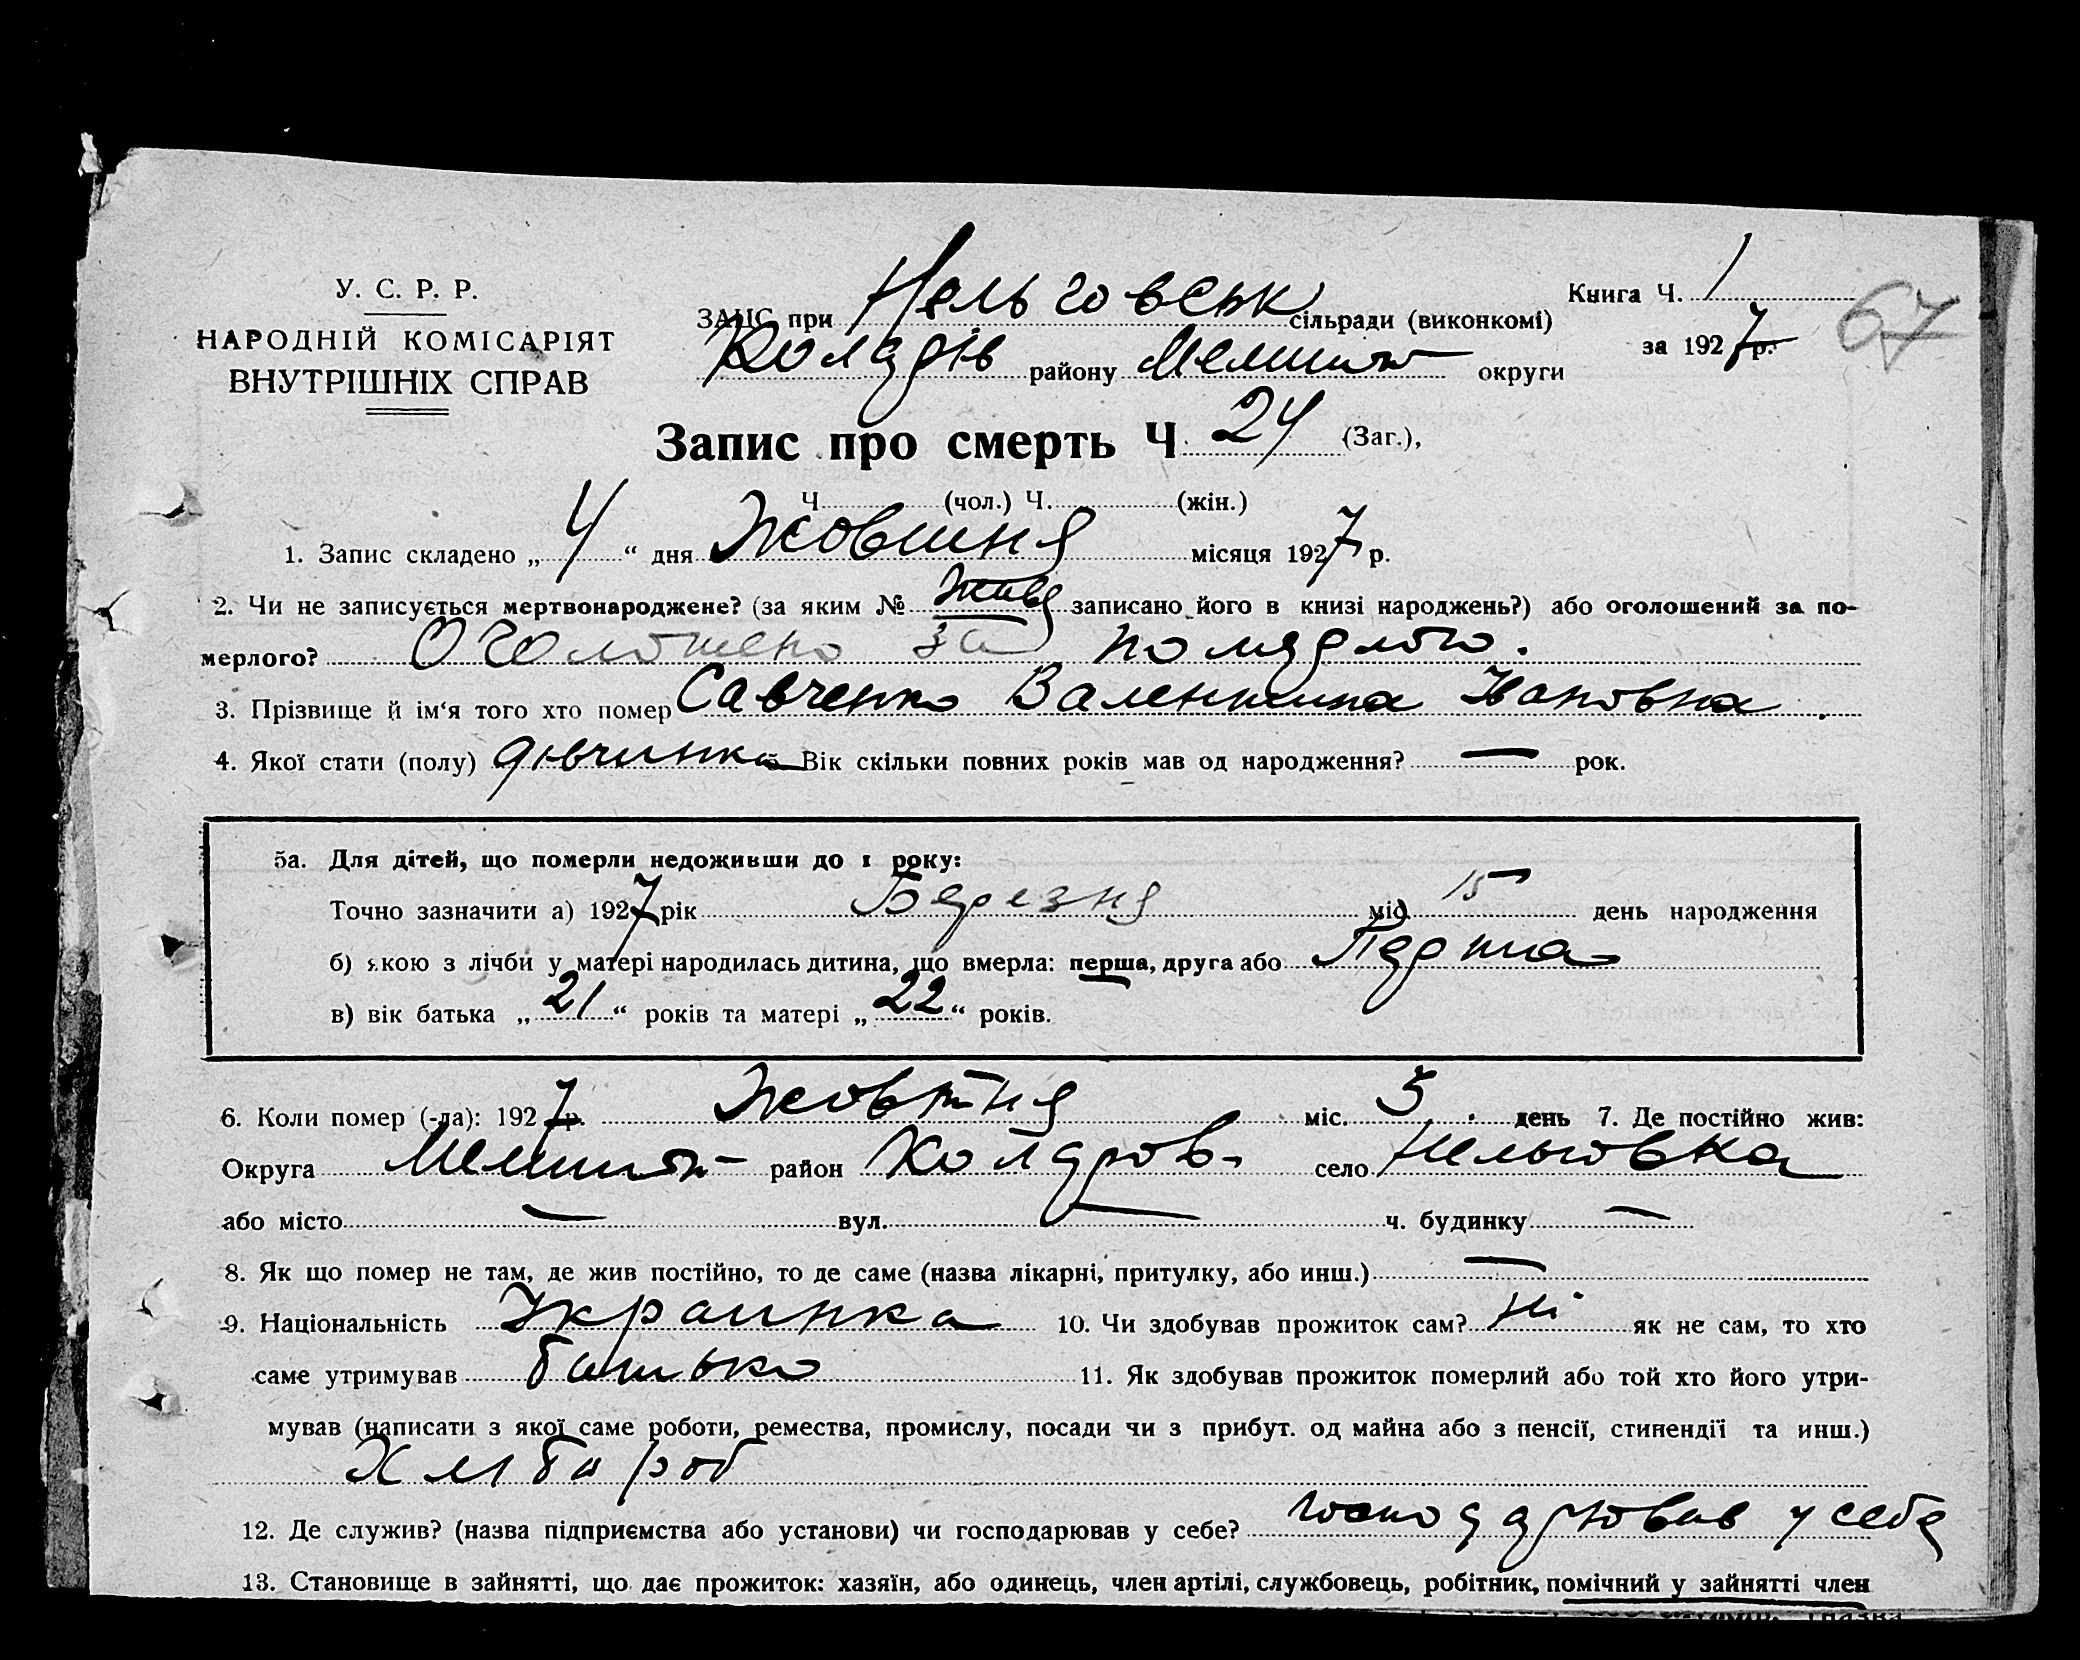 У. С. Р. Р.
НАРОДНІЙ КОМІСАРІЯТ
ВНУТРІШНІХ СПРАВ
ЗАПС при Нельговськ сільради (виконкомі)
Коларів району Мелитоп округи
Книга Ч. 1
за 1927 р.
67
Запис про смерть Ч. 24 (Заг.),
Ч. (чол.) Ч. (жін.)
1. Запис складено „ 4 “ дня Жовтня місяця 1927 р.
2. Чи не записується мертвонароджене? (за яким № жива записано його в книзі народжень?) або оголошений за по-
мерлого? Оголошено за померлого.
3. Прізвище й ім'я того хто помер Савченко Валентина Івановна
4. Якої стати (полу) дівчинка 5. Вік скільки повних років мав од народження? — рок.
5а. Для дітей, що померли недоживши до 1 року:
Точно зазначити а) 1927 рік Березня міс. 15 день народження
б) якою з лічби у матері народилась дитина, що вмерла: перша, друга або Перша
в) вік батька „ 21 “ років та матері „ 22 “ років.
6. Коли помер (-ла): 1927 р. Жовтня міс. 3 день 7. Де постійно жив:
Округа Мелитоп- район Коларов- село Нельговка
або місто — вул. — ч. будинку —
8. Як що помер не там, де жив постійно, то де саме (назва лікарні, притулку, або инш.) —
9. Національність Украинка 10. Чи здобував прожиток сам? Ні як не сам, то хто
саме утримував батько 11. Як здобував прожиток померлий або той хто його утри-
мував (написати з якої саме роботи, ремества, промислу, посади чи з прибут. од майна або з пенсії, стипендії та инш.)
Хлібороб
12. Де служив? (назва підприємства або установи) чи господарював у себе? господарював у себе
13. Становище в зайнятті, що дає прожиток: хазяїн, або одинець, член артілі, службовець, робітник, помічний у зайнятті член